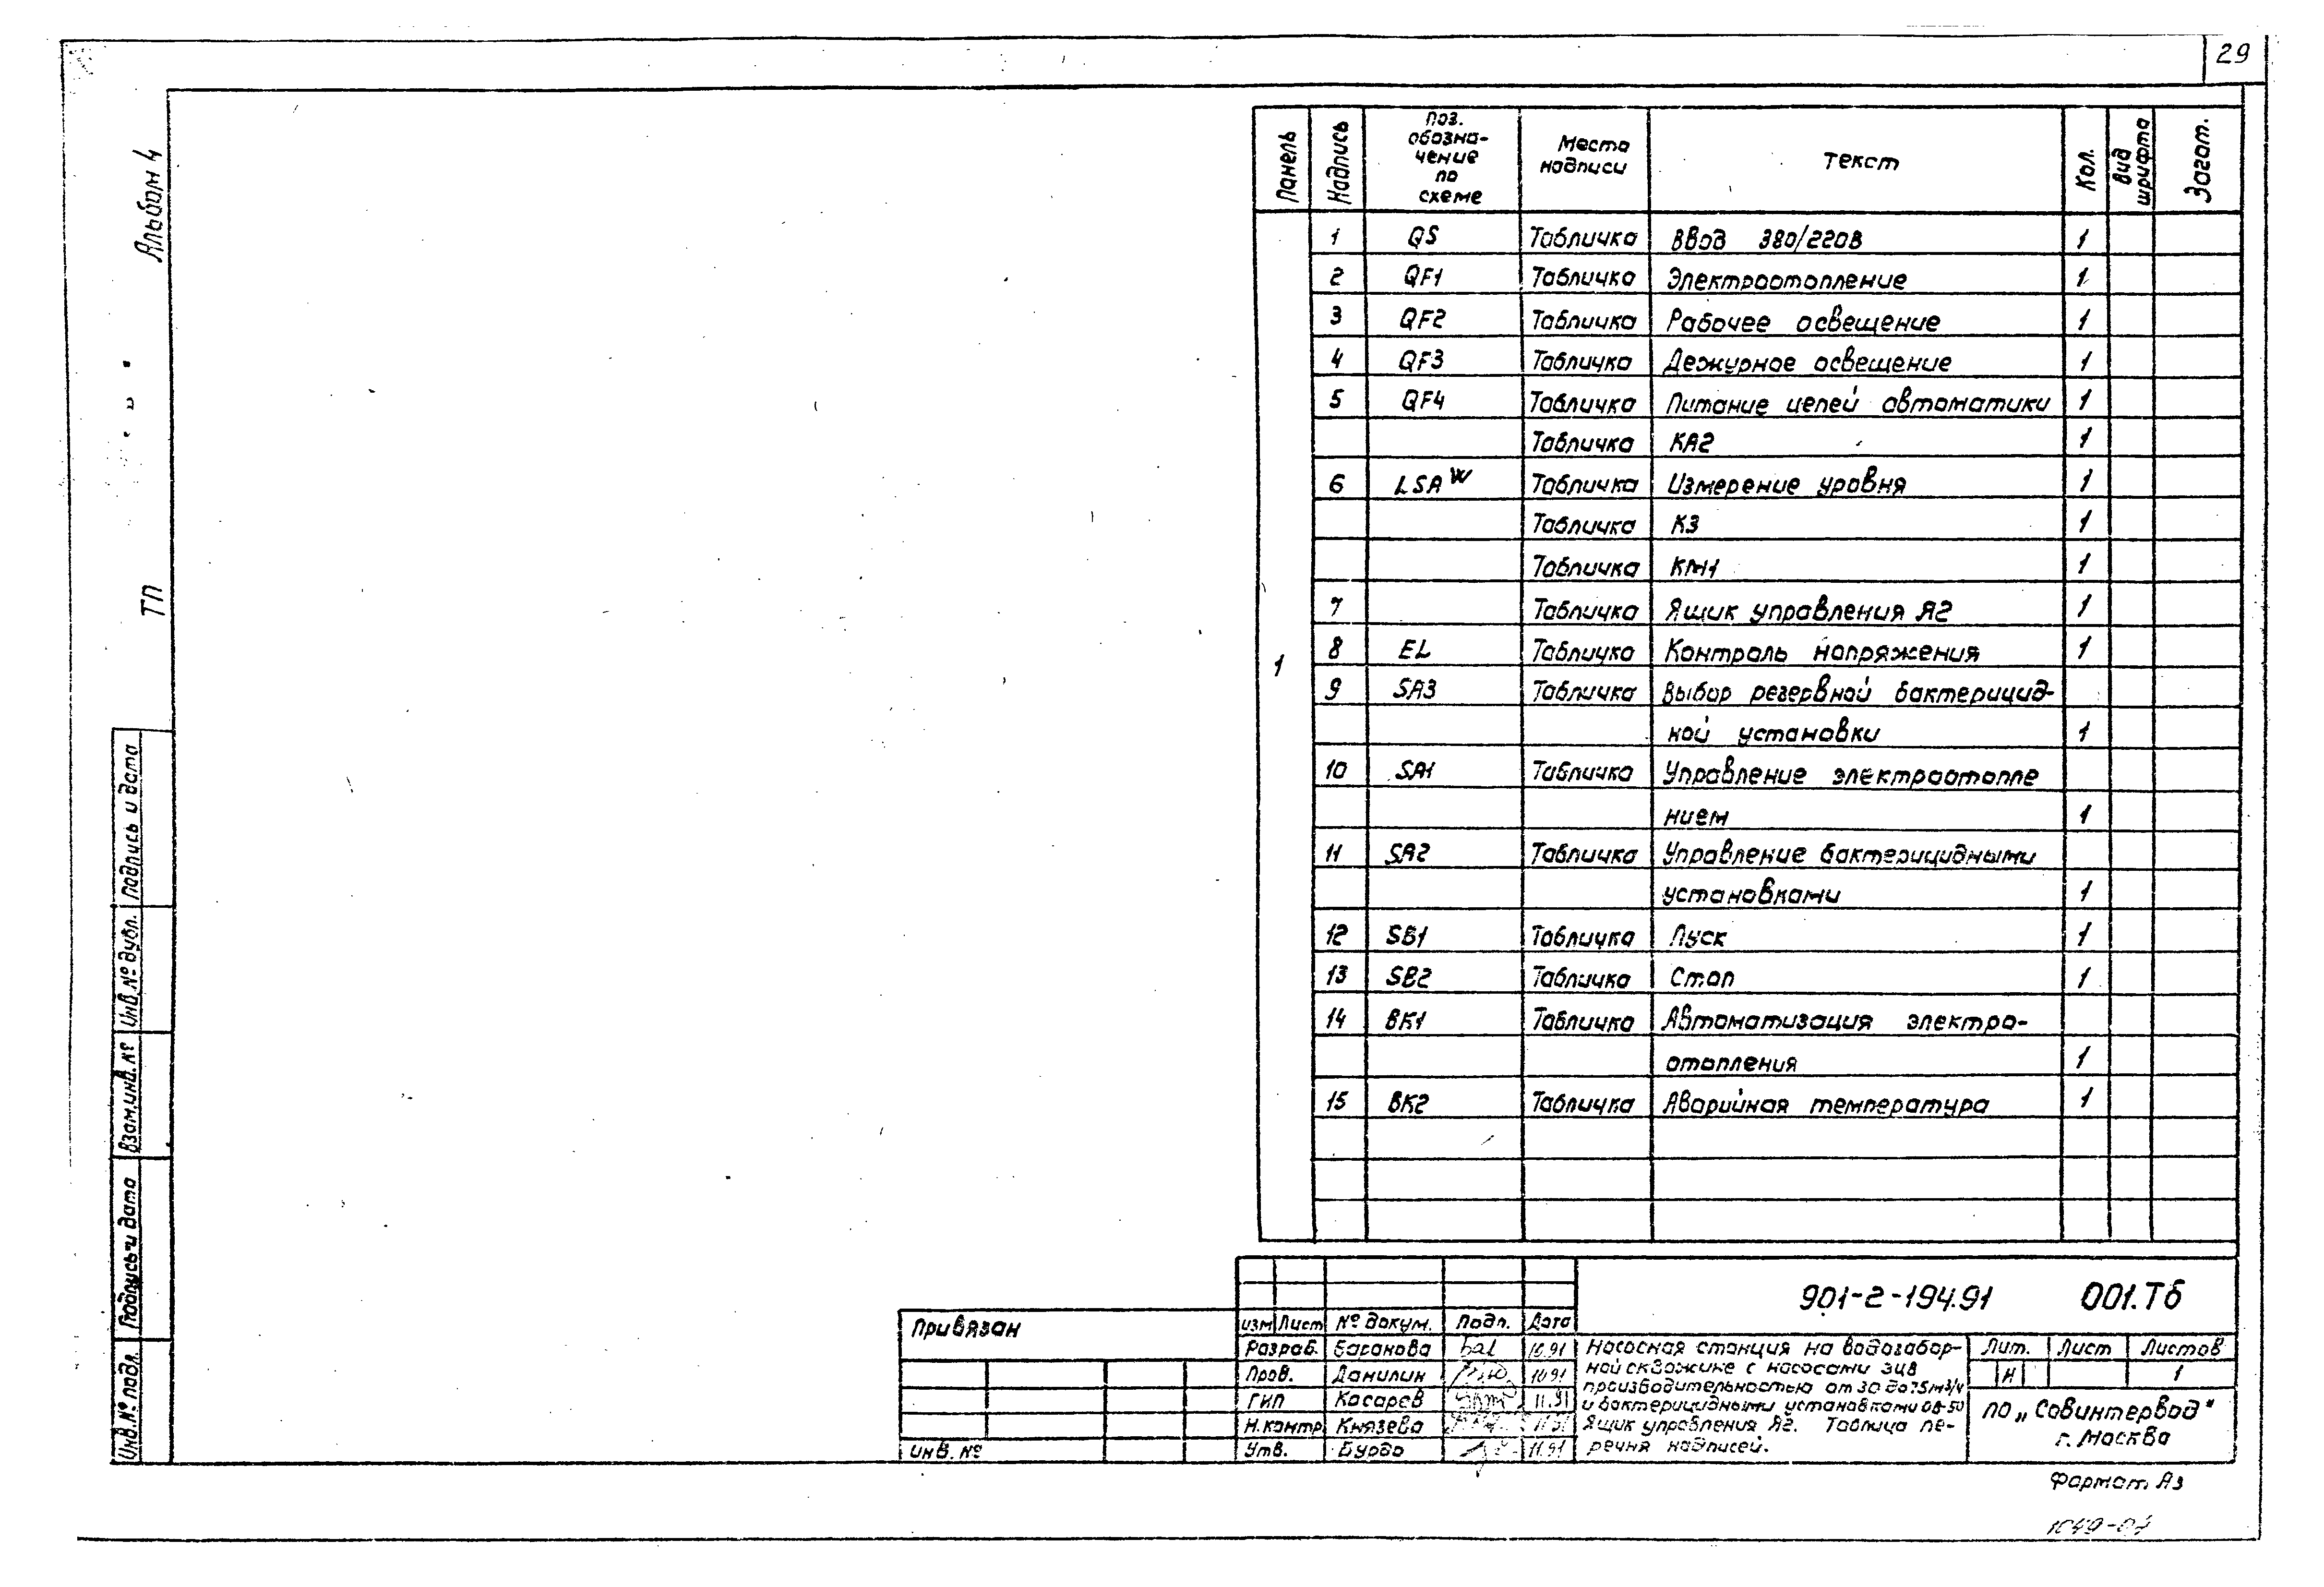 29
Альбом 4
ТП
Панель Надпись Поз. обозна-чение по схеме Место надписи Текст Кол. Вид шрифта Загот.
1
1 QS Табличка Ввод 380/220В 1
2 QF1 Табличка Электроотопление 1
3 QF2 Табличка Рабочее освещение 1
4 QF3 Табличка Дежурное освещение 1
5 QF4 Табличка Питание цепей автоматики 1
Табличка КА2 1
6 LSA W Табличка Измерение уровня 1
Табличка К3 1
Табличка КМ1 1
7 Табличка Ящик управления Я2 1
8 EL Табличка Контроль напряжения 1
9 SA3 Табличка Выбор резервной бактерицид-
ной установки 1
10 SA1 Табличка Управление электроотопле
нием 1
11 SA2 Табличка Управление бактерицидными
установками 1
12 SB1 Табличка Пуск 1
13 SB2 Табличка Стоп 1
14 BK1 Табличка Автоматизация электро-
отопления 1
15 BK2 Табличка Аварийная температура 1
901-2-194.91 001.Тб
Привязан
Инв. №
Изм Лист № докум. Подп. Дата
Разраб. Баранова 10.91
Пров. Данилин 10.91
ГИП Косарев 11.91
Н.контр Князева 11.91
Утв. Бурдо 11.91
Насосная станция на водозабор-
ной скважине с насосами ЭЦВ
производительностью от 30 до 75м3/ч
и бактерицидными установками ОВ-50
Ящик управления Я2. Таблица пе-
речня надписей.
Лит. Лист Листов
И 1
ПО „Совинтервод"
г. Москва
Формат А3
Инв.№ подл. Подпись и дата Взам.инв.№ Инв.№ дубл. Подпись и дата